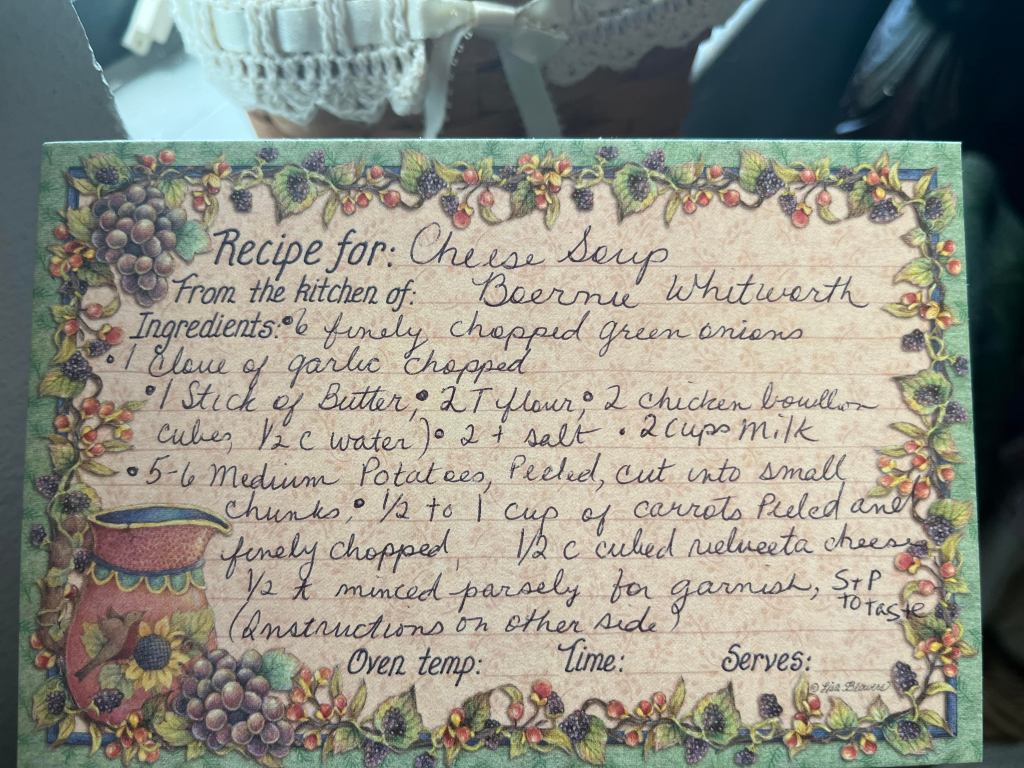 Recipe for: Cheese Soup
From the kitchen of: Boernie Whitworth
Ingredients: • 6 finely chopped green onions
• 1 Clove of garlic chopped
• 1 Stick of Butter, • 2 T flour, • 2 chicken bouillon
cubes, 1/2 c water) • 2 t salt • 2 cups Milk
• 5-6 Medium Potatoes, Peeled, cut into small
chunks, • 1/2 to 1 cup of carrots Peeled and
finely chopped 1/2 c cubed velveeta cheese
1/2 t minced parsely for garnish, S+P
to taste
(Instructions on other side)
Oven temp: Time: Serves:
© Lisa Blowers